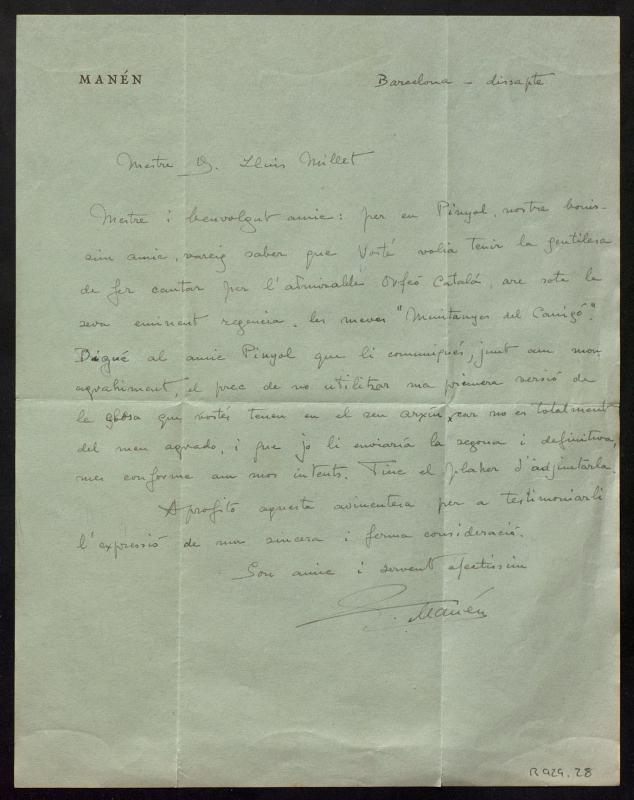 MANÉN
Barcelona - dissapte
Mestre D. Lluis Millet
Mestre i benvolgut amic: per en Pinyol, nostre bonis-
sim amic, vareig saber que Vosté volia tenir la gentilesa
de fer cantar per l'admirable Orfeó Catalá, are sota la
seva eminent regencia, les meves "Muntanyes del Canigó".
Digué al amic Pinyol que li comuniqués, junt am mon
agrahiment, el prec de no utilitzar ma primera versió de
la glosa que vostés tenen en el seu arxiu, car no es totalment
del meu agrado, i que jo li enviaría la segona i definitiva,
mes conforme am mos intents. Tinc el plaher d'adjuntarla.
Aprofito aquesta avinentesa per a testimoniarli
l'expressió de ma sincera i ferma consideració.
Son amic i servent afectissim
J. Manén
R 929.28